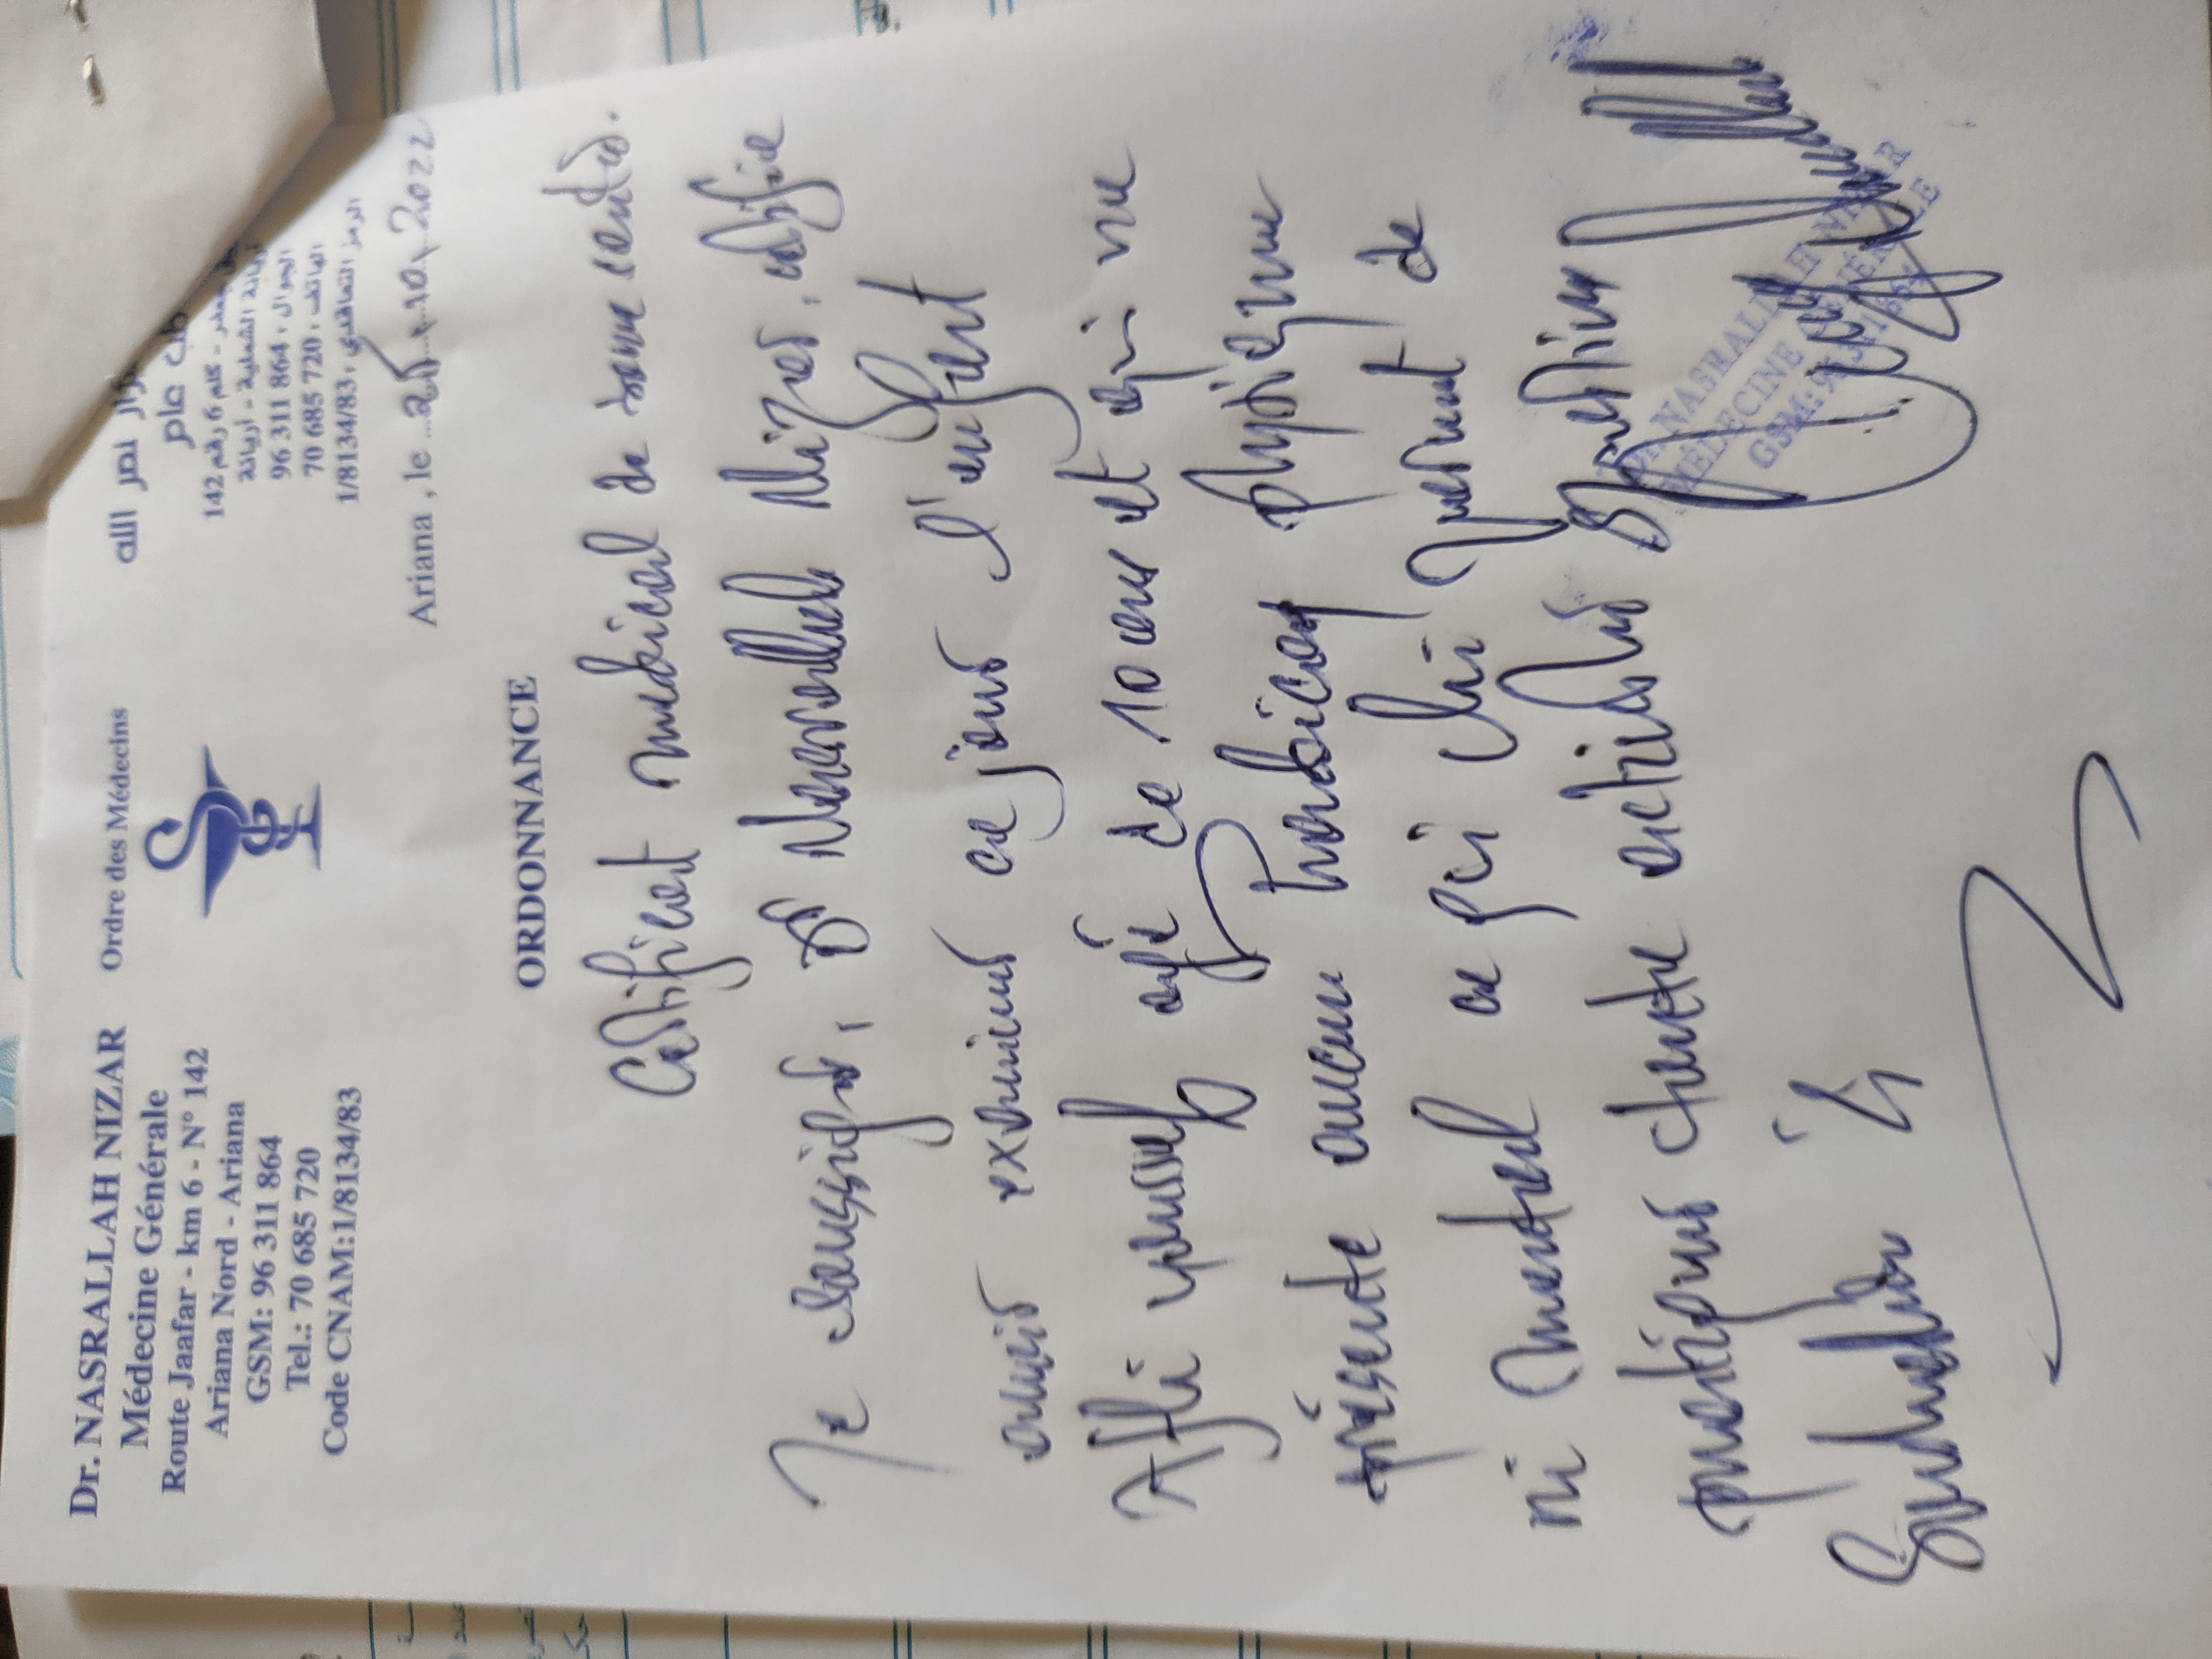 Dr. NASRALLAH NIZAR
Médecine Générale
Route Jaafar - km 6 - N° 142
Ariana Nord - Ariana
GSM: 96 311 864
Tel.: 70 685 720
Code CNAM:1/8134/83
Ordre des Médecins
نزار نصر الله
طب عام
جعفر - كلم 6 رقم 142
أريانة الشمالية - أريانة
الجوال : 864 311 96
الهاتف : 720 685 70
الرمز التعاقدي : 1/8134/83
Ariana , le 25.10.2022
ORDONNANCE
Certificat médical de bonne santé.
Je soussigné, Dr Nasrallah Nizar, certifie
avoir examiné ce jour l'enfant
youssef âgé de 10 ans et qui ne
présente aucun handicap physique
ni mental ce qui lui permet de
pratiquer toute activité
DR NASRALLAH NIZAR
MÉDECINE GÉNÉRALE
GSM: 96 311 864